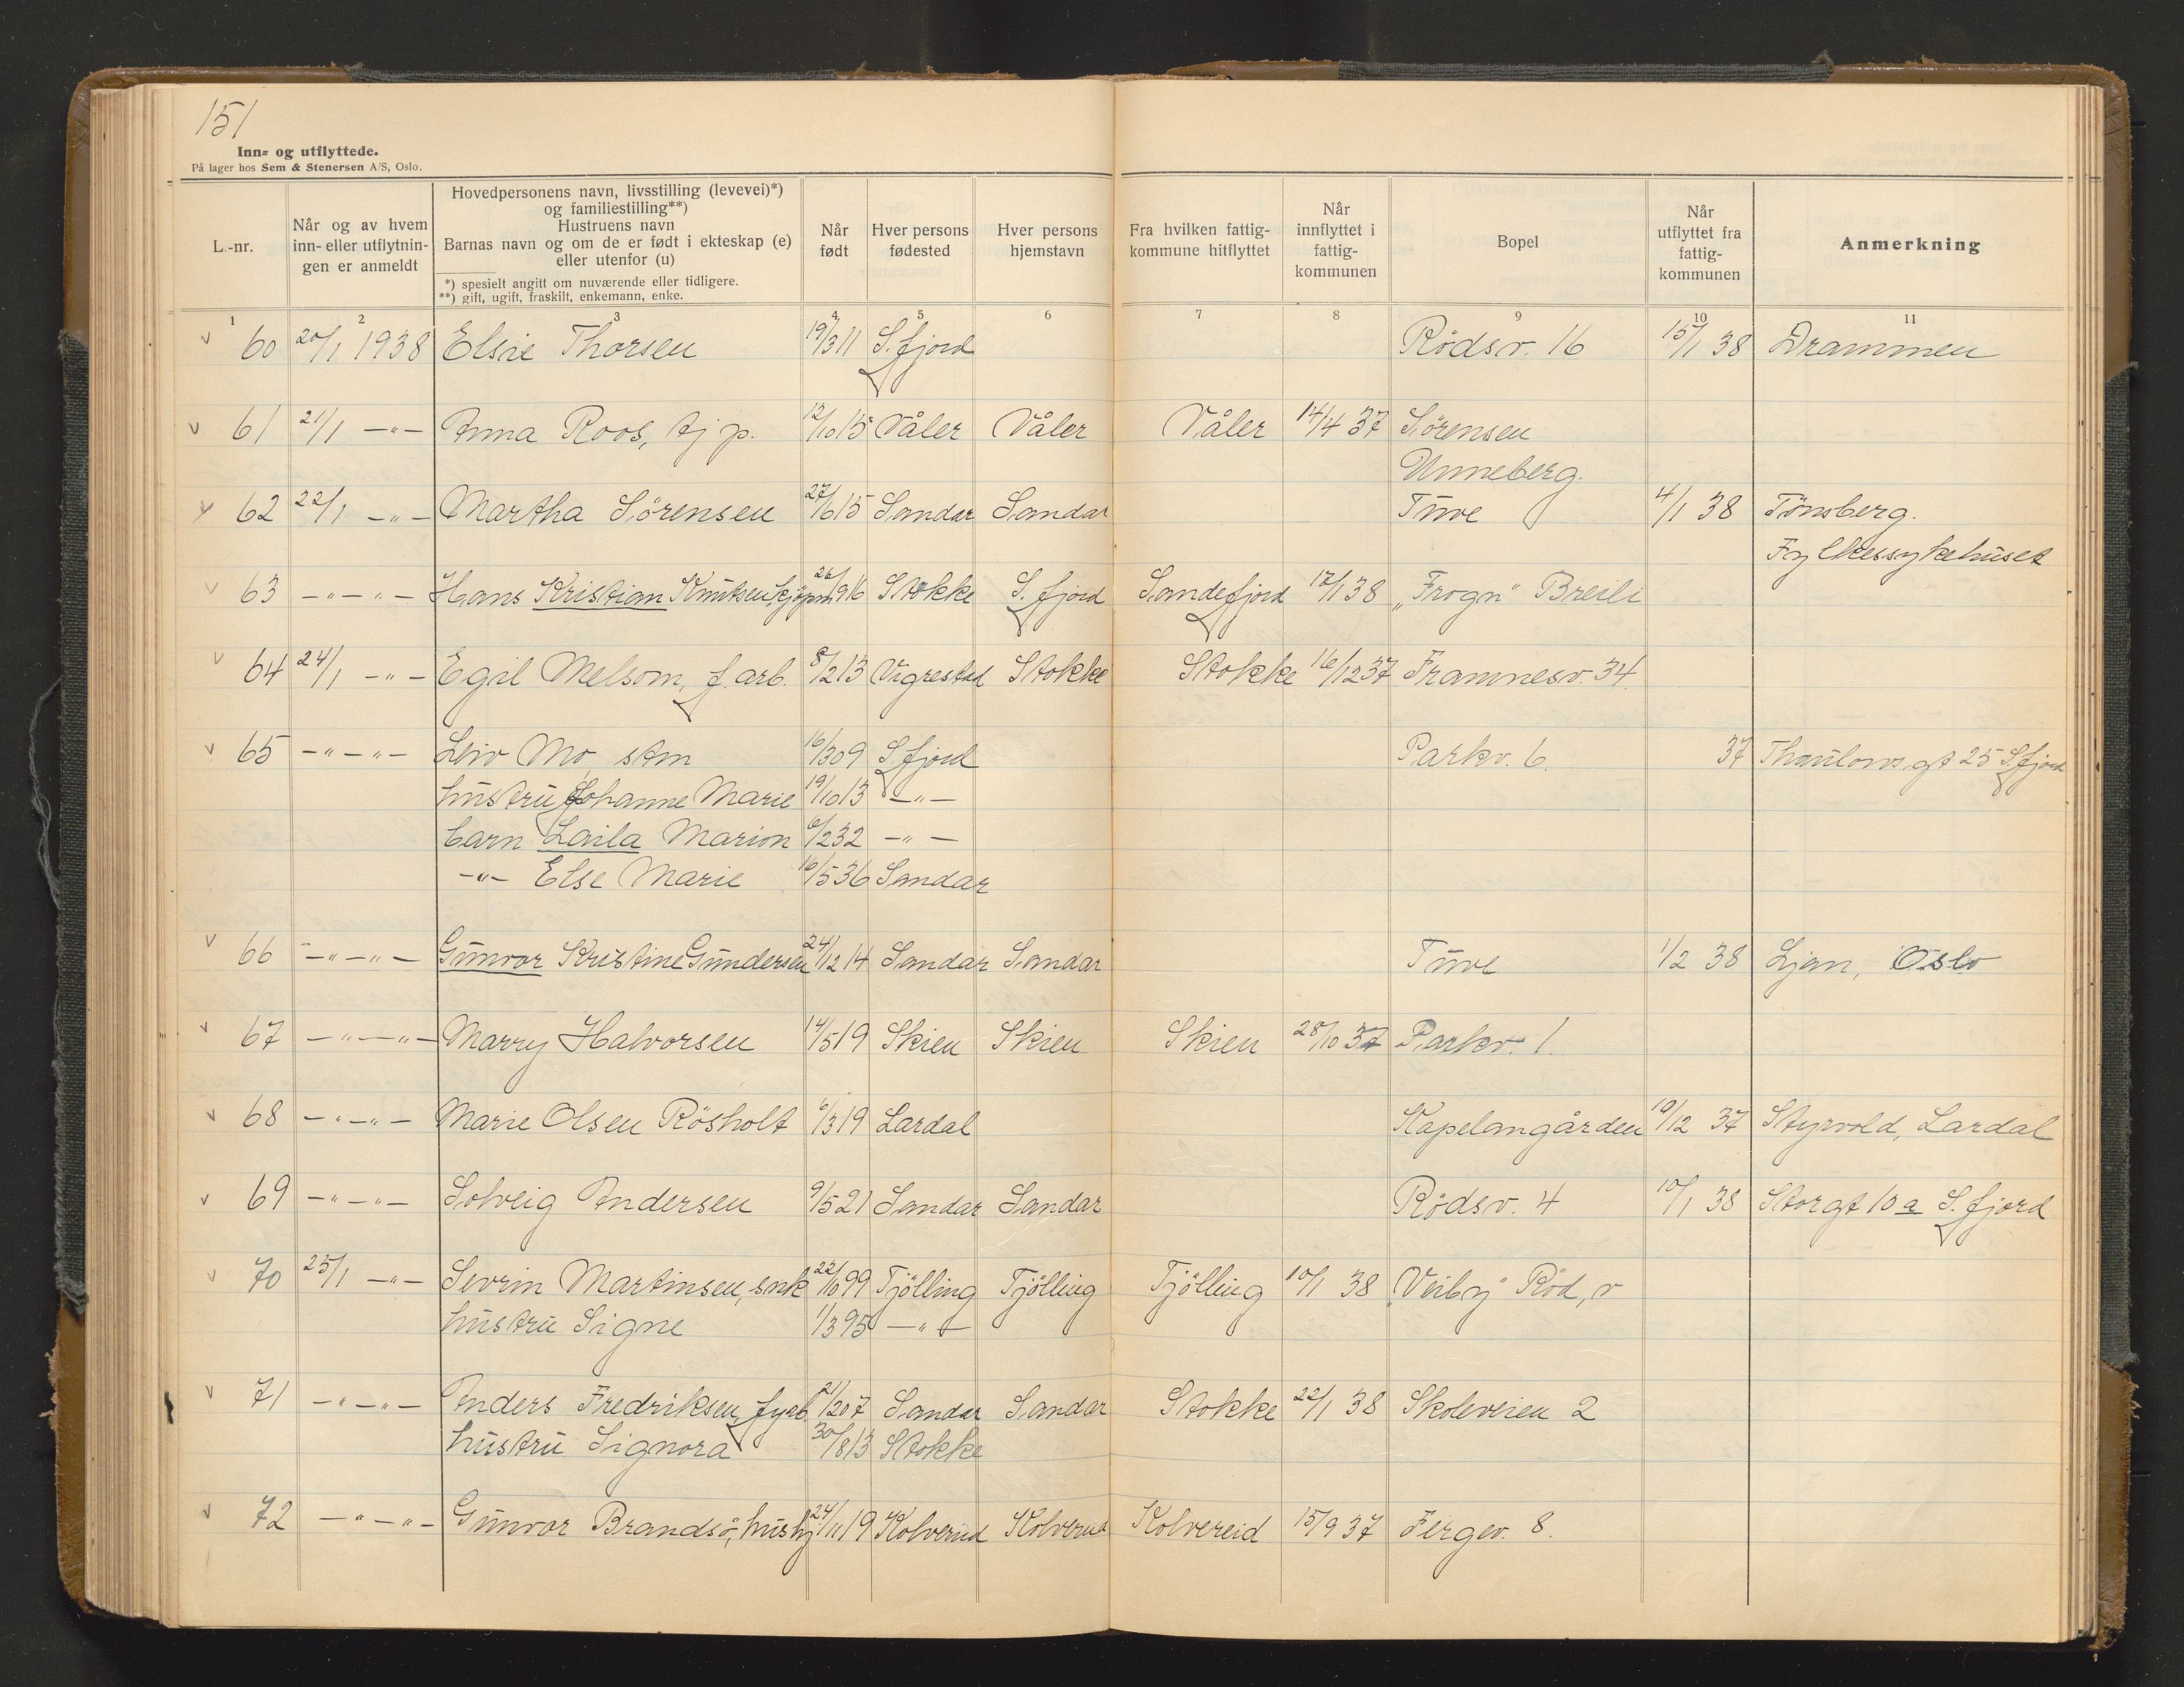 151
Inn- og utflyttede.
På lager hos Sem & Stenersen A/S, Oslo.
L.-nr.
Når og av hvem inn- eller utflytningen er anmeldt
Hovedpersonens navn, livsstilling (levevei)*) og familiestilling**)
Hustruens navn
Barnas navn og om de er født i ekteskap (e) eller utenfor (u)
*) spesielt angitt om nuværende eller tidligere.
**) gift, ugift, fraskilt, enkemann, enke.
Når født
Hver persons fødested
Hver persons hjemstavn
Fra hvilken fattigkommune hitflyttet
Når innflyttet i fattigkommunen
Bopel
Når utflyttet fra fattigkommunen
Anmerkning
1 2 3 4 5 6 7 8 9 10 11
v 60 20/1 1938 Elsie Thorsen 19/3 11 S.fjord Rödsv. 16 15/1 38 Drammen
v 61 21/1 -"- Anna Roos, tj p. 12/10 15 Våler Våler Våler 14/4 37 Sörensen
Unneberg.
v 62 22/1 -"- Martha Sörensen 27/6 15 Sandar Sandar Tuve 4/1 38 Tönsberg.
Fylkessykehuset
v 63 -"-"- Hans Kristian Knutsen, kjøpm 26/9 16 Stokke S. fjord Sandefjord 17/1 38 „Frogn" Breili
v 64 24/1 -"- Egil Melsom, f. arb. 8/2 13 Vigrestad Stokke Stokke 16/12 37 Framnesv. 34
v 65 -"-"- Leiv Mo stm 16/3 09 S.fjord Parkv. 6. 37 Thaulows gt 25 S.fjord
hustru Johanne Marie 19/10 13 -"-
barn Laila Marion 6/2 32 -"-
-"- Else Marie 16/5 36 Sandar
v 66 -"-"- Gunvor Kristine Gundersen 24/12 14 Sandar Sandar Tuve 1/2 38 Ljan, Oslo
v 67 -"-"- Marry Halvorsen 14/5 19 Skien Skien Skien 28/10 37 Parkv. 1.
v 68 -"-"- Marie Olsen Rösholt 6/3 19 Lardal Kapelangården 10/12 37 Styrvold, Lardal
v 69 -"-"- Solveig Andersen 9/5 21 Sandar Sandar Rödsv. 4 10/1 38 Storgt 10 a S. fjord
v 70 25/1 -"- Sevrin Martinsen, snk 22/10 99 Tjölling Tjölling Tjölling 10/1 38 „Veiby" Röd, v
hustru Signe 1/3 95 -"-
v 71 -"-"- Anders Fredriksen, fyrb. 21/12 07 Sandar Sandar Stokke 22/1 38 Skoleveien 2
hustru Signora 30/8 13 Stokke
v 72 -"-"- Gunvor Brandsö, hushj 24/11 19 Kolverud Kolverud Kolvereid 15/9 37 Fergev. 8.